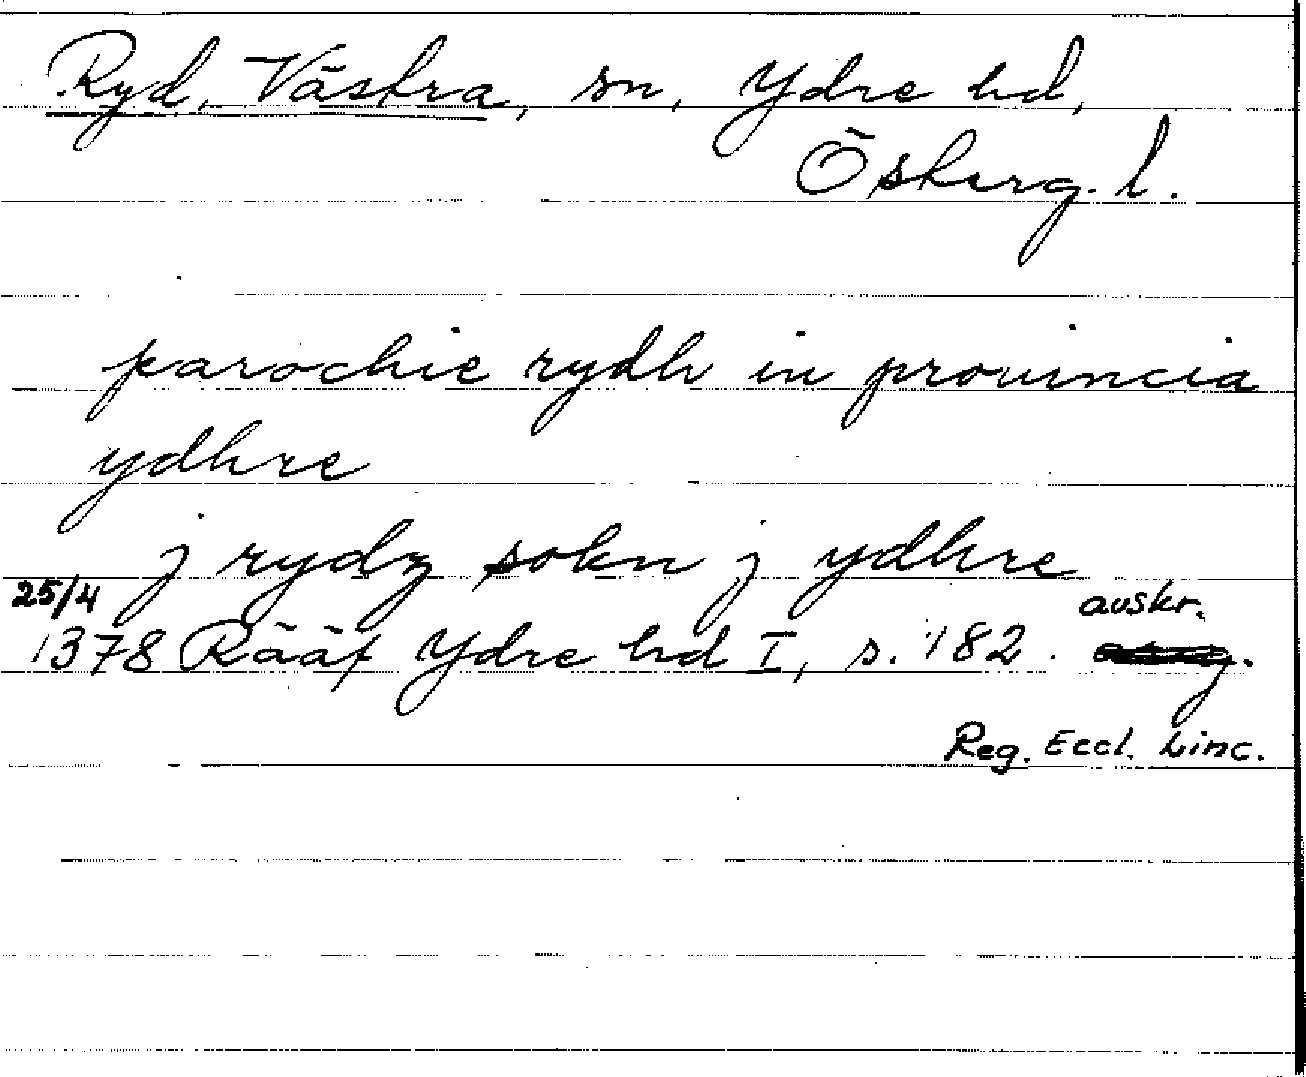 Ryd, Västra, sn, Ydre hd,
Östergö. l.
parochie rydh in prouincia
ydhre
j rydz sokn j ydhre
25/4 avskr.
1378 Rääf Ydre hd I, s. 182.
Reg. Eccl. Linc.